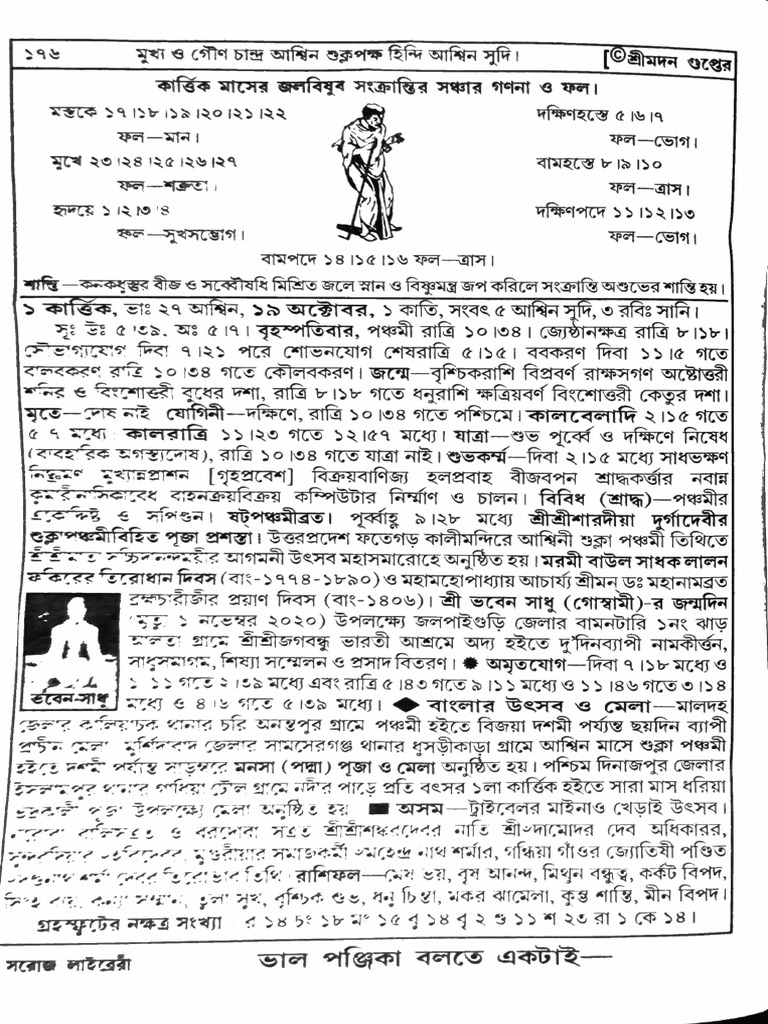 ১৭৬ মুখ্য ও গৌণ চান্দ্র আশ্বিন শুক্লপক্ষ হিন্দি আশ্বিন সুদি। [©শ্রীমদন গুপ্তের
কার্ত্তিক মাসের জলবিষুব সংক্রান্তির সঞ্চার গণনা ও ফল।
মস্তকে ১৭।১৮।১৯।২০।২১।২২
ফল—মান।
মুখে ২৩।২৪।২৫।২৬।২৭
ফল—শত্রুতা।
হৃদয়ে ১।২।৩।৪
ফল—সুখসম্ভোগ।
দক্ষিণহস্তে ৫।৬।৭
ফল—ভোগ।
বামহস্তে ৮।৯।১০
ফল—ত্রাস।
দক্ষিণপদে ১১।১২।১৩
ফল—ভোগ।
বামপদে ১৪।১৫।১৬ ফল—ত্রাস।
শান্তি—কনকধুস্তুর বীজ ও সর্ব্বৌষধি মিশ্রিত জলে স্নান ও বিষ্ণুমন্ত্র জপ করিলে সংক্রান্তি অশুভের শান্তি হয়।
১ কার্ত্তিক, ভাঃ ২৭ আশ্বিন, ১৯ অক্টোবর, ১ কাতি, সংবৎ ৫ আশ্বিন সুদি, ৩ রবিঃ সানি।
সূঃ উঃ ৫।৩৯, অঃ ৫।৭। বৃহস্পতিবার, পঞ্চমী রাত্রি ১০।৩৪। জ্যেষ্ঠানক্ষত্র রাত্রি ৮।১৮।
সৌভাগ্যযোগ দিবা ৭।২১ পরে শোভনযোগ শেষরাত্রি ৫।১৫। ববকরণ দিবা ১১।৫ গতে
বালবকরণ রাত্রি ১০।৩৪ গতে কৌলবকরণ। জন্মে—বৃশ্চিকরাশি বিপ্রবর্ণ রাক্ষসগণ অষ্টোত্তরী
শনির ও বিংশোত্তরী বুধের দশা, রাত্রি ৮।১৮ গতে ধনুরাশি ক্ষত্রিয়বর্ণ বিংশোত্তরী কেতুর দশা।
মৃতে—দোষ নাই যোগিনী—দক্ষিণে, রাত্রি ১০।৩৪ গতে পশ্চিমে। কালবেলাদি ২।১৫ গতে
৫।৭ মধ্যে কালরাত্রি ১১।২৩ গতে ১২।৫৭ মধ্যে। যাত্রা—শুভ পূর্ব্বে ও দক্ষিণে নিষেধ
(ব্যবহারিক অগস্ত্যদোষ), রাত্রি ১০।৩৪ গতে যাত্রা নাই। শুভকর্ম্ম—দিবা ২।১৫ মধ্যে সাধভক্ষণ
নিষ্ক্রমণ মুখ্যান্নপ্রাশন [গৃহপ্রবেশ] বিক্রয়বাণিজ্য হলপ্রবাহ বীজবপন শ্রাদ্ধকর্ত্তার নবান্ন
কুমারীনাসিকাবেধ বাহনক্রয়বিক্রয় কম্পিউটার নির্ম্মাণ ও চালন। বিবিধ (শ্রাদ্ধ)—পঞ্চমীর
একোদ্দিষ্ট ও সপিণ্ডন। ষট্‌পঞ্চমীব্রত। পূর্ব্বাহ্ণ ৯।২৮ মধ্যে শ্রীশ্রীশারদীয়া দুর্গাদেবীর
শুক্লাপঞ্চমীবিহিত পূজা প্রশস্তা। উত্তরপ্রদেশ ফতেগড় কালীমন্দিরে আশ্বিনী শুক্লা পঞ্চমী তিথিতে
শ্রীশ্রীমাতা সচ্চিদানন্দময়ীর আগমনী উৎসব মহাসমারোহে অনুষ্ঠিত হয়। মরমী বাউল সাধক লালন
ফকিরের তিরোধান দিবস (বাং-১৭৭৪-১৮৯০) ও মহামহোপাধ্যায় আচার্য্য শ্রীমন ডঃ মহানামব্রত
ব্রহ্মচারীজীর প্রয়াণ দিবস (বাং-১৪০৬)। শ্রী ভবেন সাধু (গোস্বামী)-র জন্মদিন
(মৃত্যু ১ নভেম্বর ২০২০) উপলক্ষ্যে জলপাইগুড়ি জেলার বামনটারি ১নং ঝাড়
আলতা গ্রামে শ্রীশ্রীজগবন্ধু ভারতী আশ্রমে অদ্য হইতে দু'দিনব্যাপী নামকীর্ত্তন,
সাধুসমাগম, শিষ্যা সম্মেলন ও প্রসাদ বিতরণ। ✹ অমৃতযোগ—দিবা ৭।১৮ মধ্যে ও
১।১১ গতে ২।৩৯ মধ্যে এবং রাত্রি ৫।৪৩ গতে ৯।১১ মধ্যে ও ১১।৪৬ গতে ৩।১৪
ভবেন-সাধু
মধ্যে ও ৪।৬ গতে ৫।৩৯ মধ্যে। ◆ বাংলার উৎসব ও মেলা—মালদহ
জেলার কালিয়াচক থানার চরি অনন্তপুর গ্রামে পঞ্চমী হইতে বিজয়া দশমী পর্য্যন্ত ছয়দিন ব্যাপী
প্রাচীন মেলা মুর্শিদাবাদ জেলার সামসেরগঞ্জ থানার ধুসড়ীকাড়া গ্রামে আশ্বিন মাসে শুক্লা পঞ্চমী
হইতে দশমী পর্য্যন্ত সাড়ম্বরে মনসা (পদ্মা) পূজা ও মেলা অনুষ্ঠিত হয়। পশ্চিম দিনাজপুর জেলার
ইসলামপুর থানার গদিয়া টৌল গ্রামে নদীর পাড়ে প্রতি বৎসর ১লা কার্ত্তিক হইতে সারা মাস ধরিয়া
পূজা উপলক্ষ্যে মেলা অনুষ্ঠিত হয় ■ অসম—ট্রাইবেলর মাইনাও খেড়াই উৎসব।
ও বরদোবা সত্রত শ্রীশ্রীশঙ্করদেবর নাতি শ্রীদামোদর দেব অধিকারর,
সমাজকর্মী মহেন্দ্র নাথ শর্মার, গন্ধিয়া গাঁওর জ্যোতিষী পণ্ডিত
দেবর তিরোভাব তিথি। রাশিফল—মেষ ভয়, বৃষ আনন্দ, মিথুন বন্ধুত্ব, কর্কট বিপদ,
সিংহ ব্যয়, কন্যা সম্মান, তুলা সুখ, বৃশ্চিক শুভ, ধনু চিন্তা, মকর ঝামেলা, কুম্ভ শান্তি, মীন বিপদ।
গ্রহস্ফুটের নক্ষত্র সংখ্যা র ১৪ চং ১৮ মং ১৫ বু ১৪ বৃ ২ শু ১১ শ ২৩ রা ১ কে ১৪।
সরোজ লাইব্রেরী ভাল পঞ্জিকা বলতে একটাই—